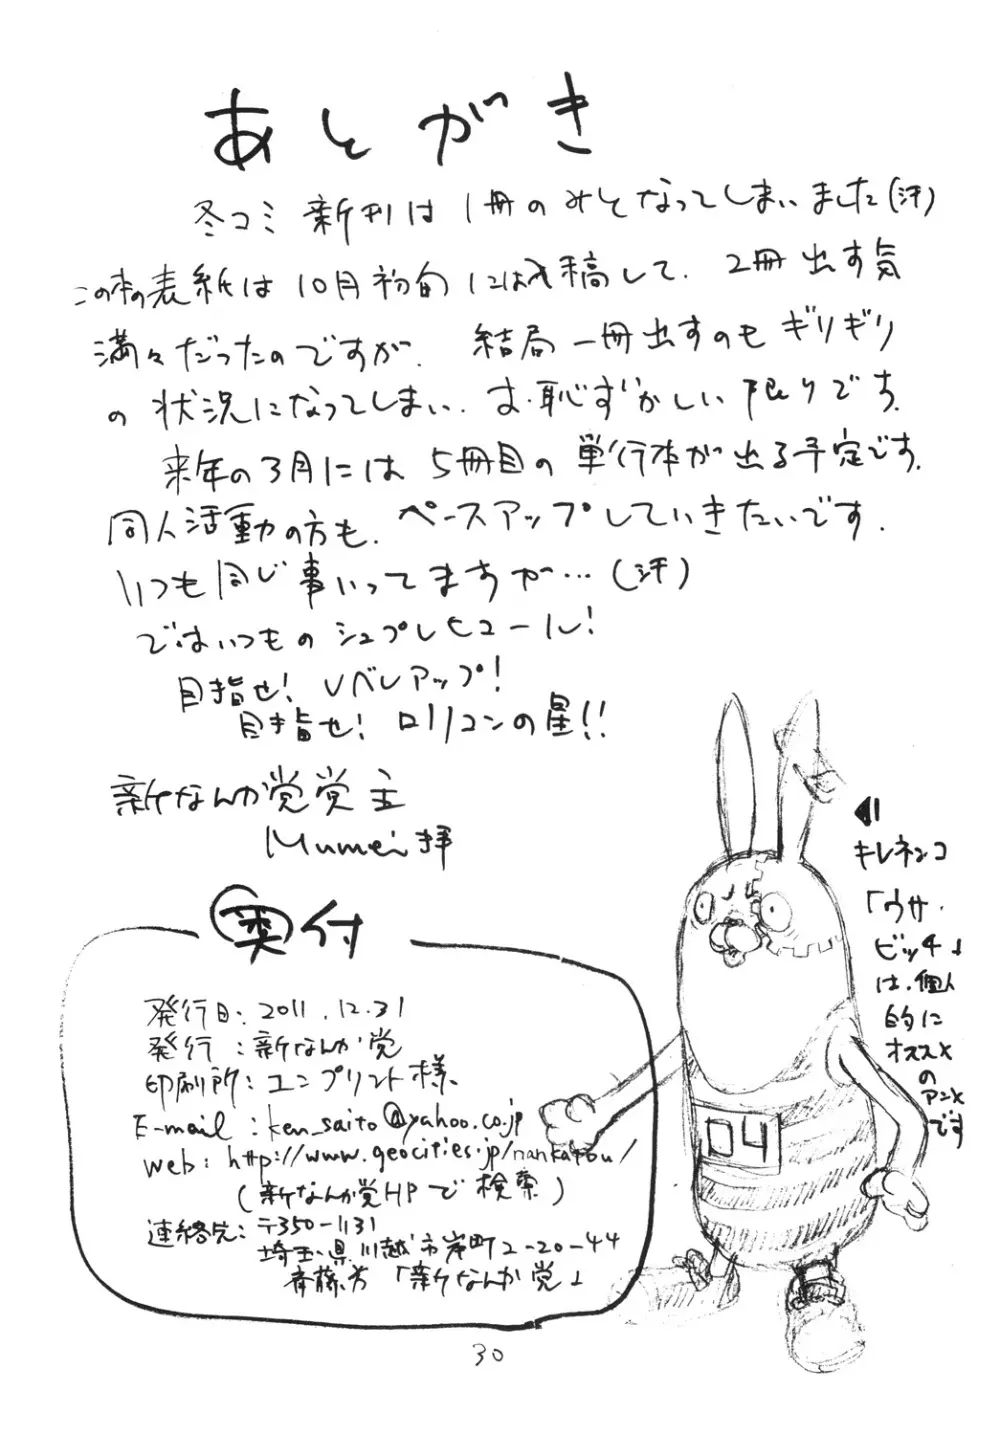 あとがき
冬コミ新刊は1冊のみとなってしまいました(汗)
この本の表紙は10月初旬には入稿して、2冊出す気
満々だったのですが、結局一冊出すのもギリギリ
の状況になってしまい、お恥ずかしい限りです。
来年の3月には5冊目の単行本が出る予定です。
同人活動の方も、ペースアップしていきたいです。
いつも同じ事いってますが…(汗)
ではいつものシュプレヒコール!
目指せ!レベルアップ!
目指せ!ロリコンの星!!
新なんか党党主
Mumei拝
奥付
発行日:2011.12.31
発行:新なんか党
印刷所:ユンプリント様
E-mail:ken_saito@yahoo.co.jp
web:http://www.geocities.jp/nankatou/
(新なんか党HPで検索)
連絡先:〒350-1131
埼玉県川越市岸町2-20-44
斉藤方「新なんか党」
キレネンコ
「ウサ・
ビッチ」
は、個人
的に
オススメ
の
アニメ
です
04
30